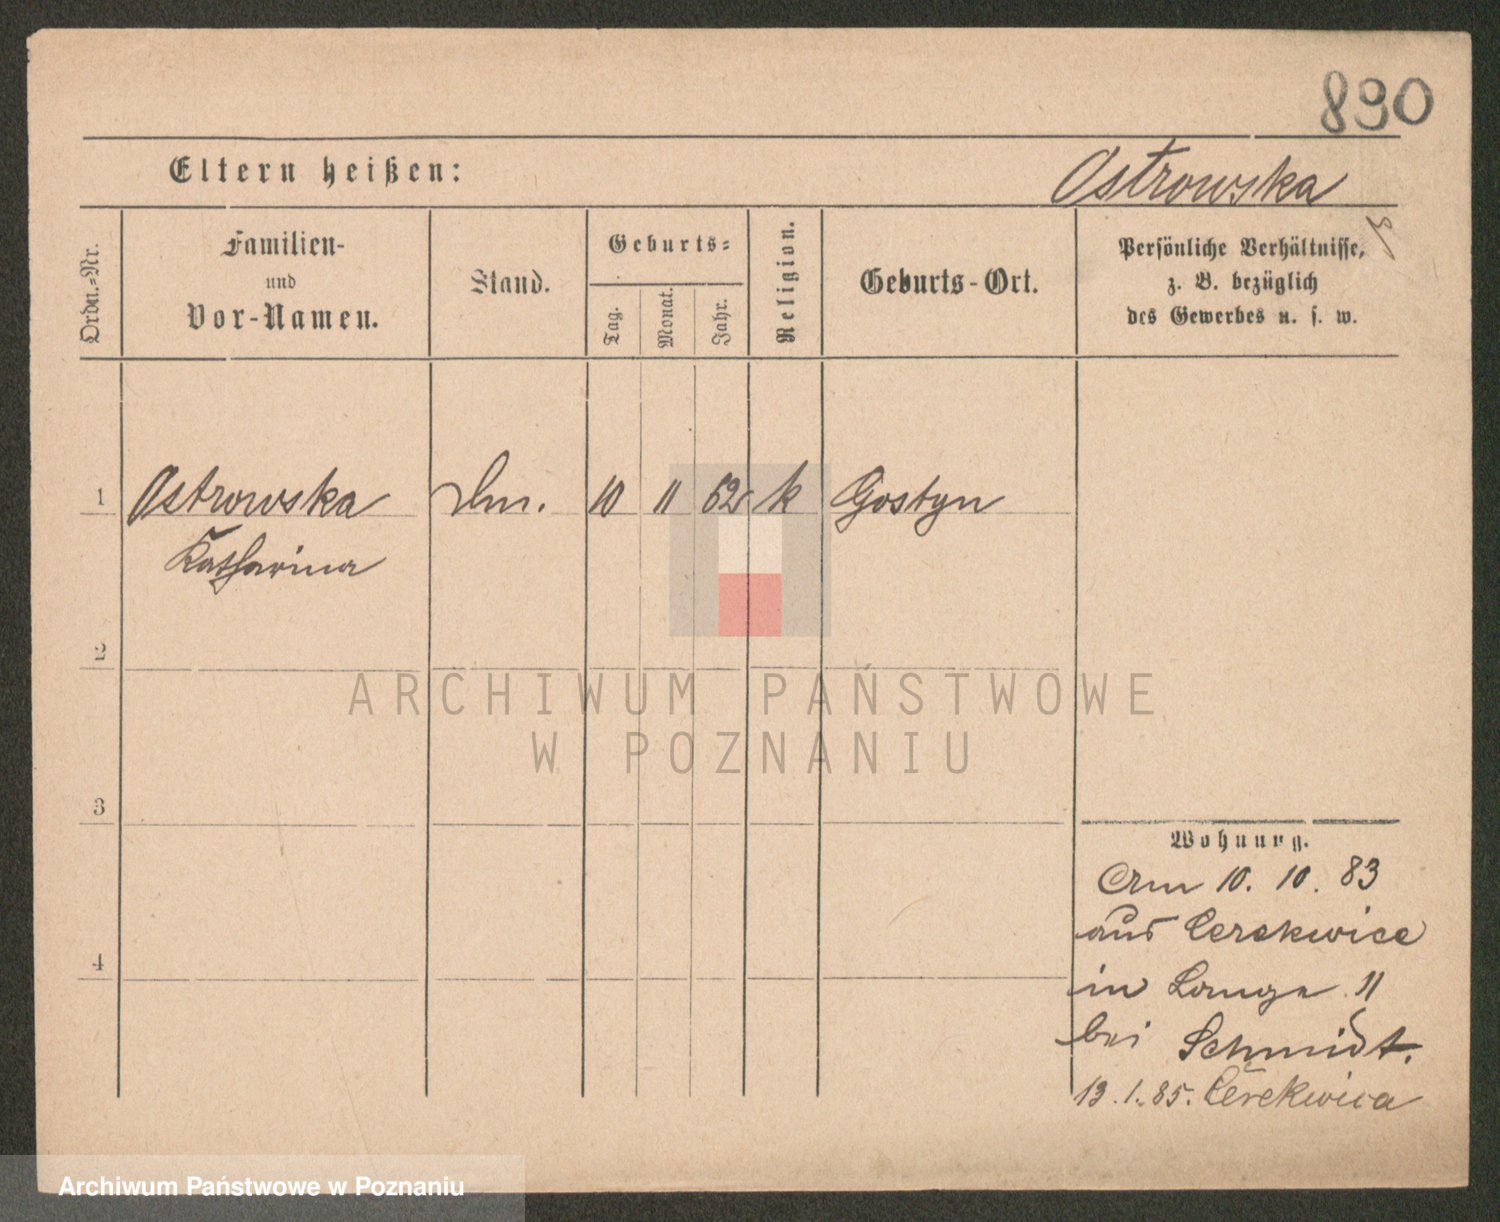 890
Eltern heißen:
Ostrowska
Ordn.-Nr.
Familien-
und
Vor-Namen.
Stand.
Geburts-
Tag.
Monat.
Jahr.
Religion.
Geburts-Ort.
Persönliche Verhältnisse,
z. B. bezüglich
des Gewerbes u. s. w.
1 Ostrowska 10 11 62 k Gostyn
Katharina
2
3
4
ARCHIWUM PAŃSTWOWE
W POZNANIU
Wohnung.
10. 10. 83
aus Cerekwice
in Lange 11
bei Schmidt.
13.1.85. Cerekwica
Archiwum Państwowe w Poznaniu